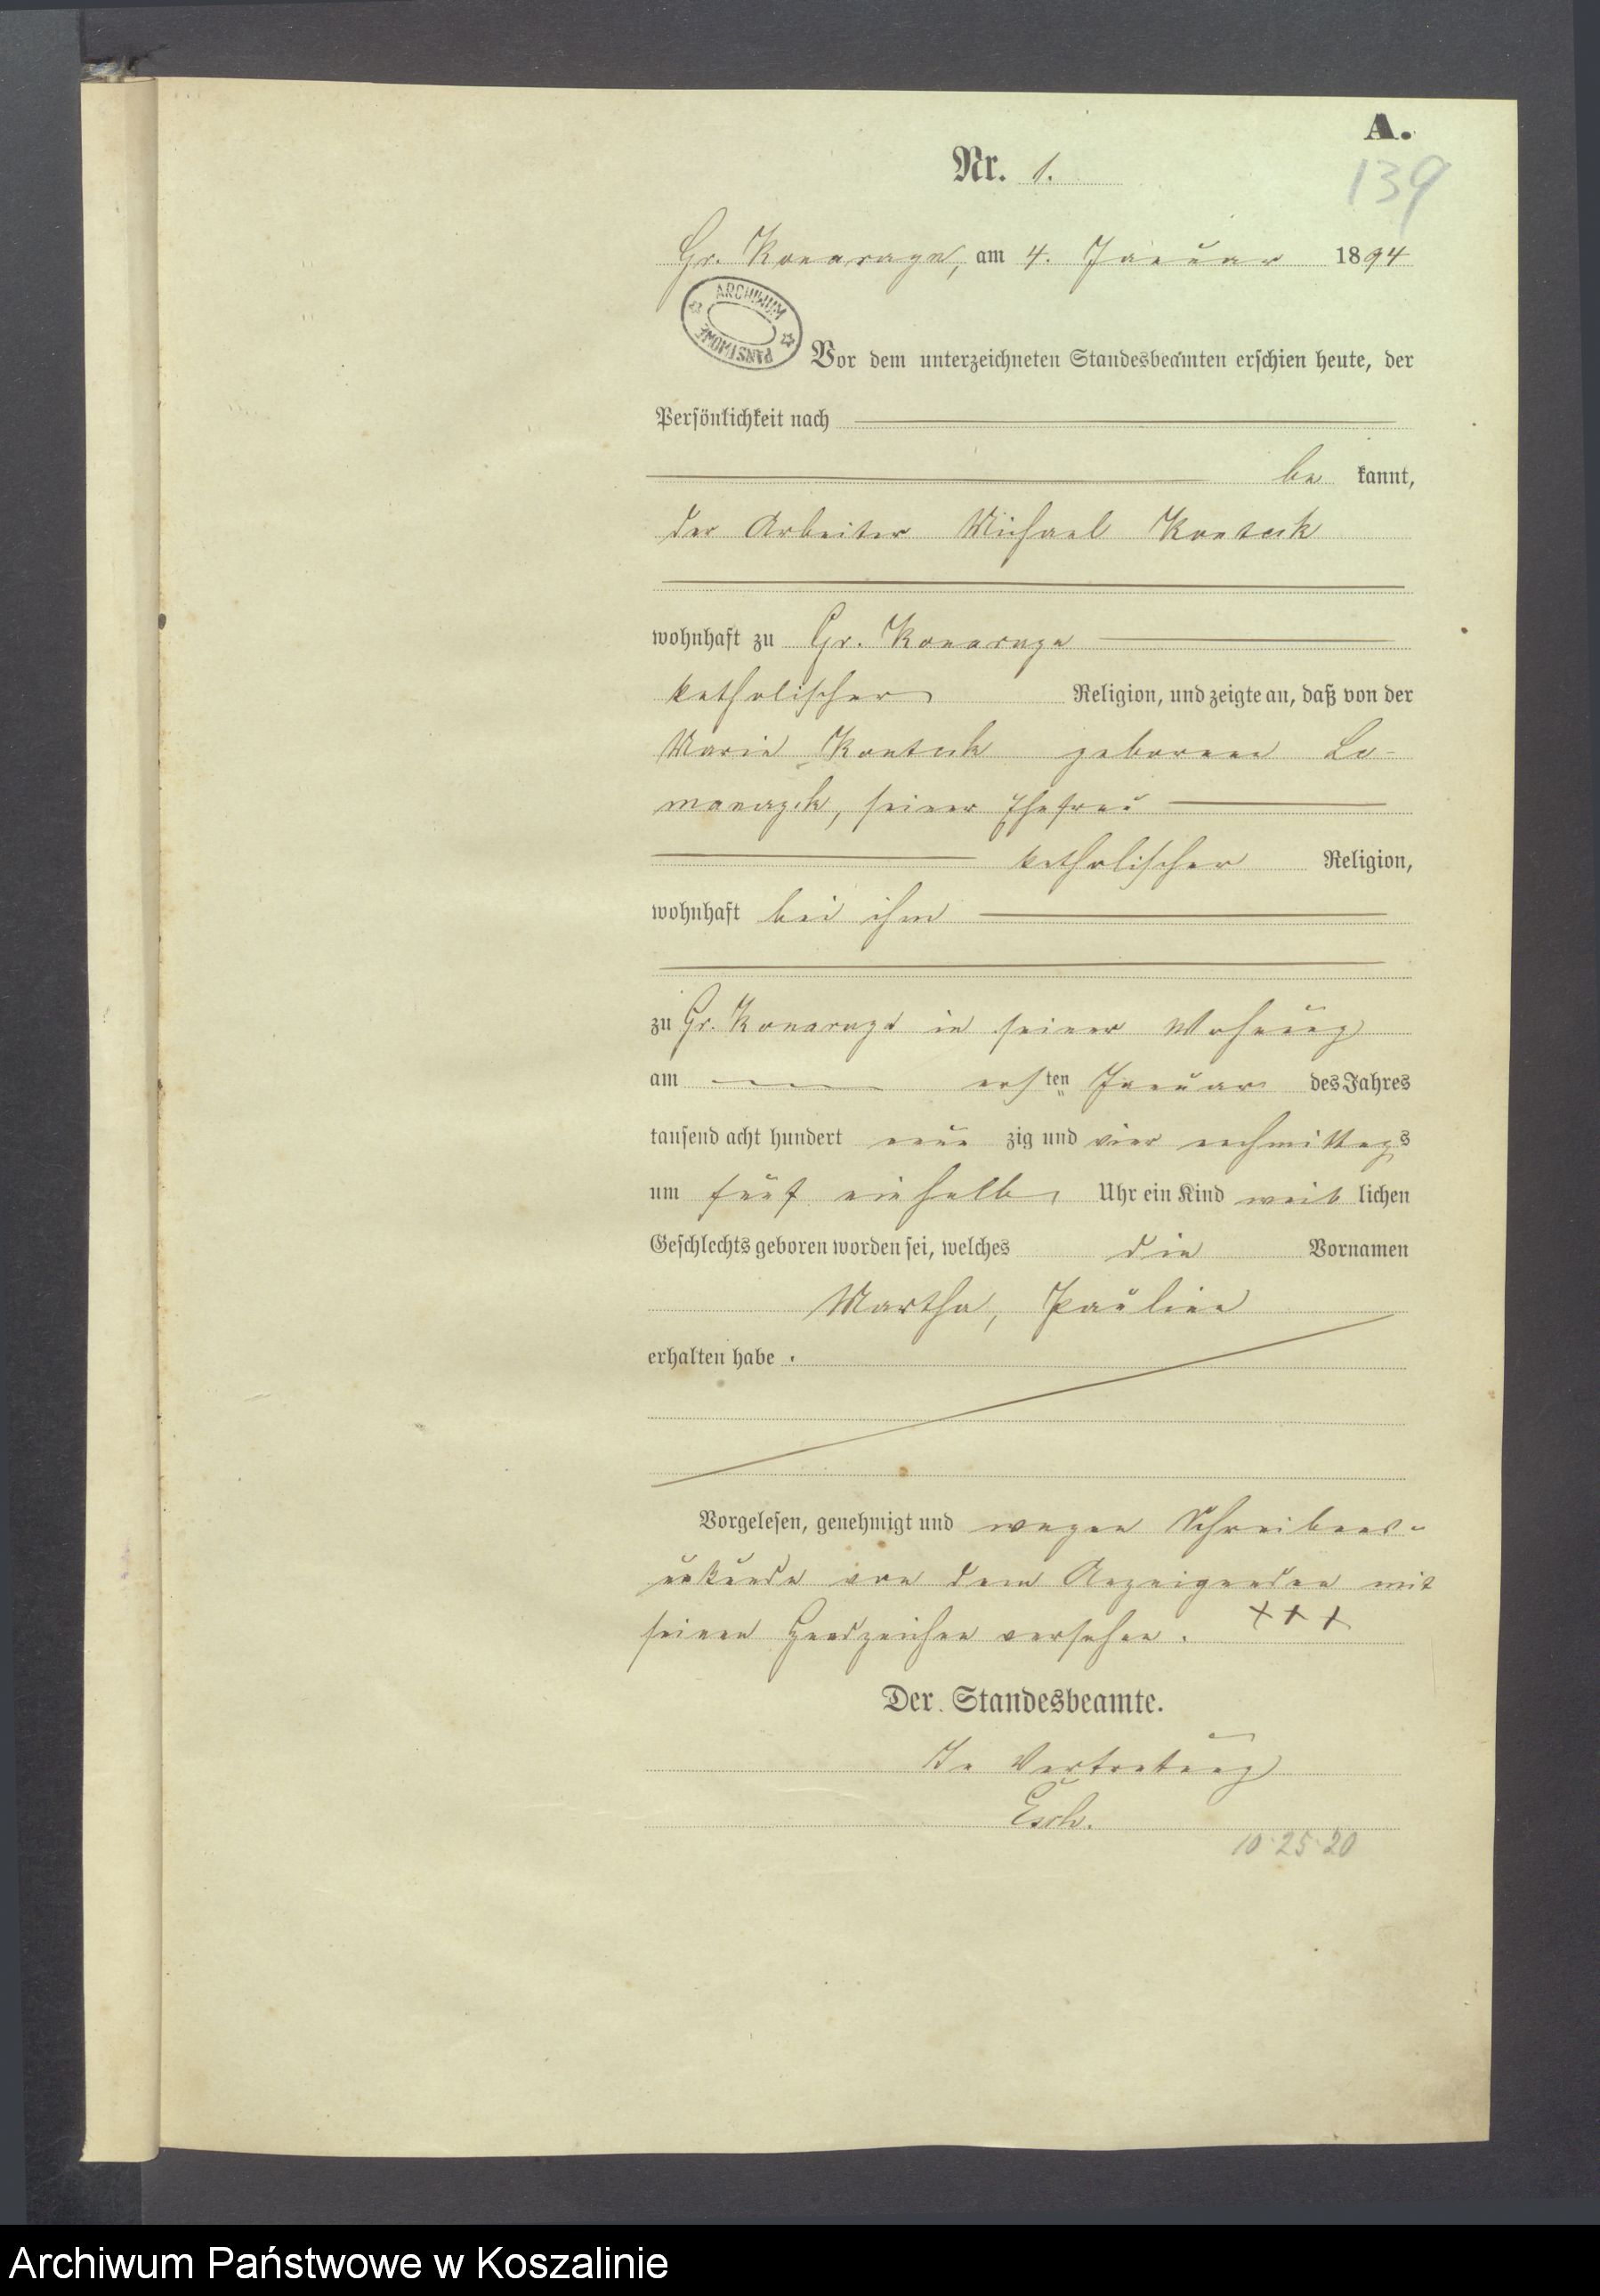 A.
139
Nr. 1.
Gr. Konarzyn, am 4. Januar 1894
ARCHIWUM PAŃSTWOWE
Vor dem unterzeichneten Standesbeamten erschien heute, der
Persönlichkeit nach
be kannt,
der Arbeiter Michael
wohnhaft zu Gr. Konarzyn
katholischer Religion, und zeigte an, daß von der
Marie geborene Lo-
seiner Ehefrau
katholischer Religion,
wohnhaft bei ihm
zu Gr. Konarzyn in seiner Wohnung
am ersten Januar des Jahres
tausend acht hundert neun zig und vier nachmittags
um fünf einhalb Uhr ein Kind weib lichen
Geschlechts geboren worden sei, welches die Vornamen
Martha, Pauline
erhalten habe.
Vorgelesen, genehmigt und wegen Schreibens-
unkunde von dem Anzeigenden mit
seinen Handzeichen versehen. +++
Der Standesbeamte.
In Vertretung
10·25·20
Archiwum Państwowe w Koszalinie